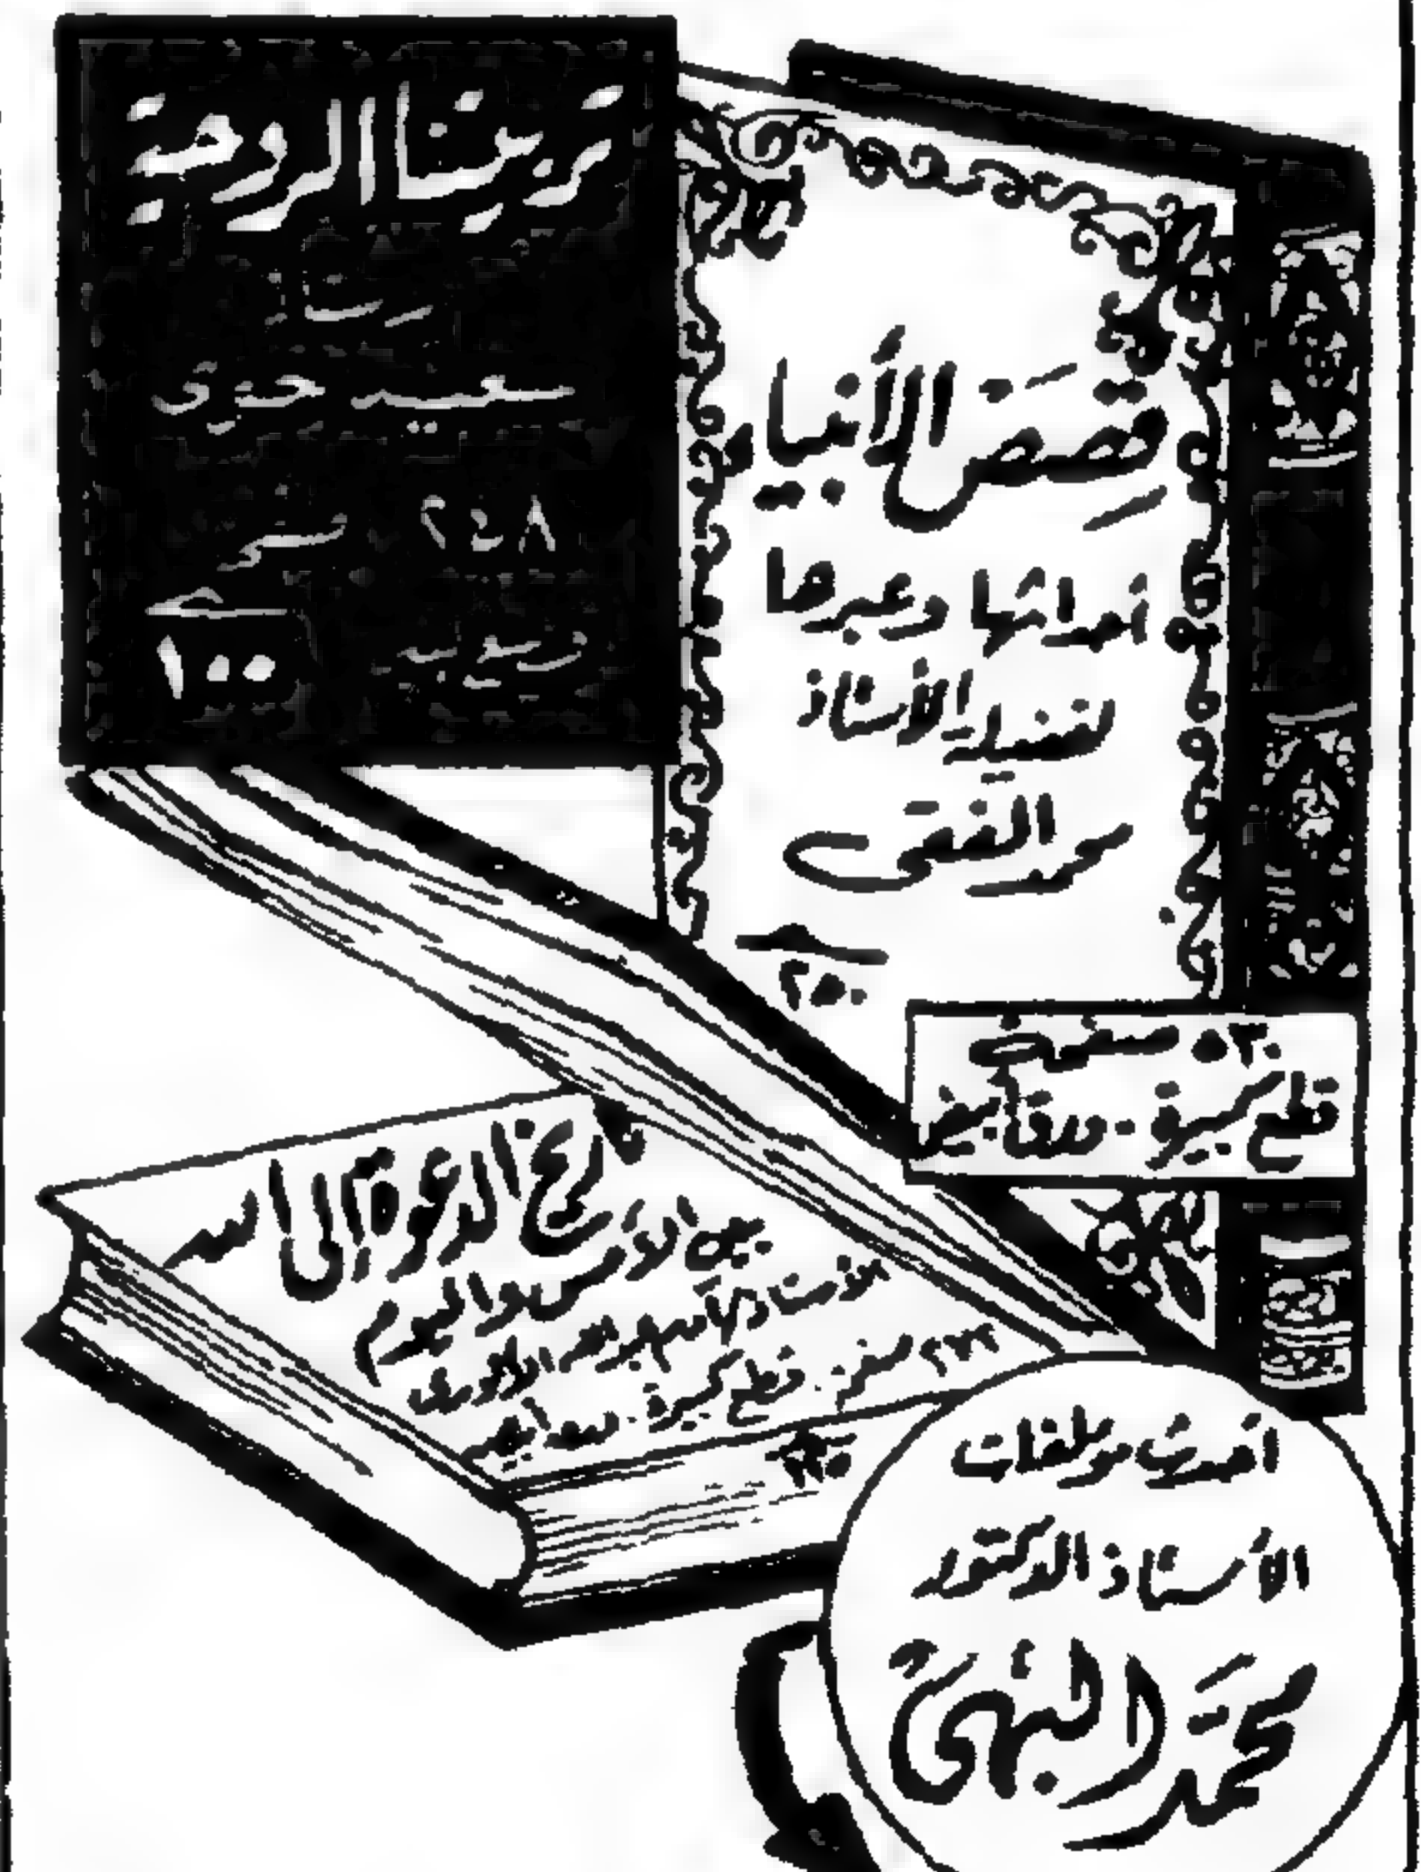 تربيتنا الروحية
سعيد حوى
١٠٠
قصص الأنبيا
أحداثها وعبرها
لفضيلة الأستاذ
محمد الفقى
٢٥٠
٥٣٠ صفحة
قطع كبيرة - ورق أبيض
تاريخ الدعوة إلى الله
بين الأمس واليوم
الأستاذ آدم عبد الله الألورى
٢٧٢ صفحة . قطع كبيرة . ورق أبيض
أحدث مؤلفات
الأستاذ الدكتور
محمد البهى